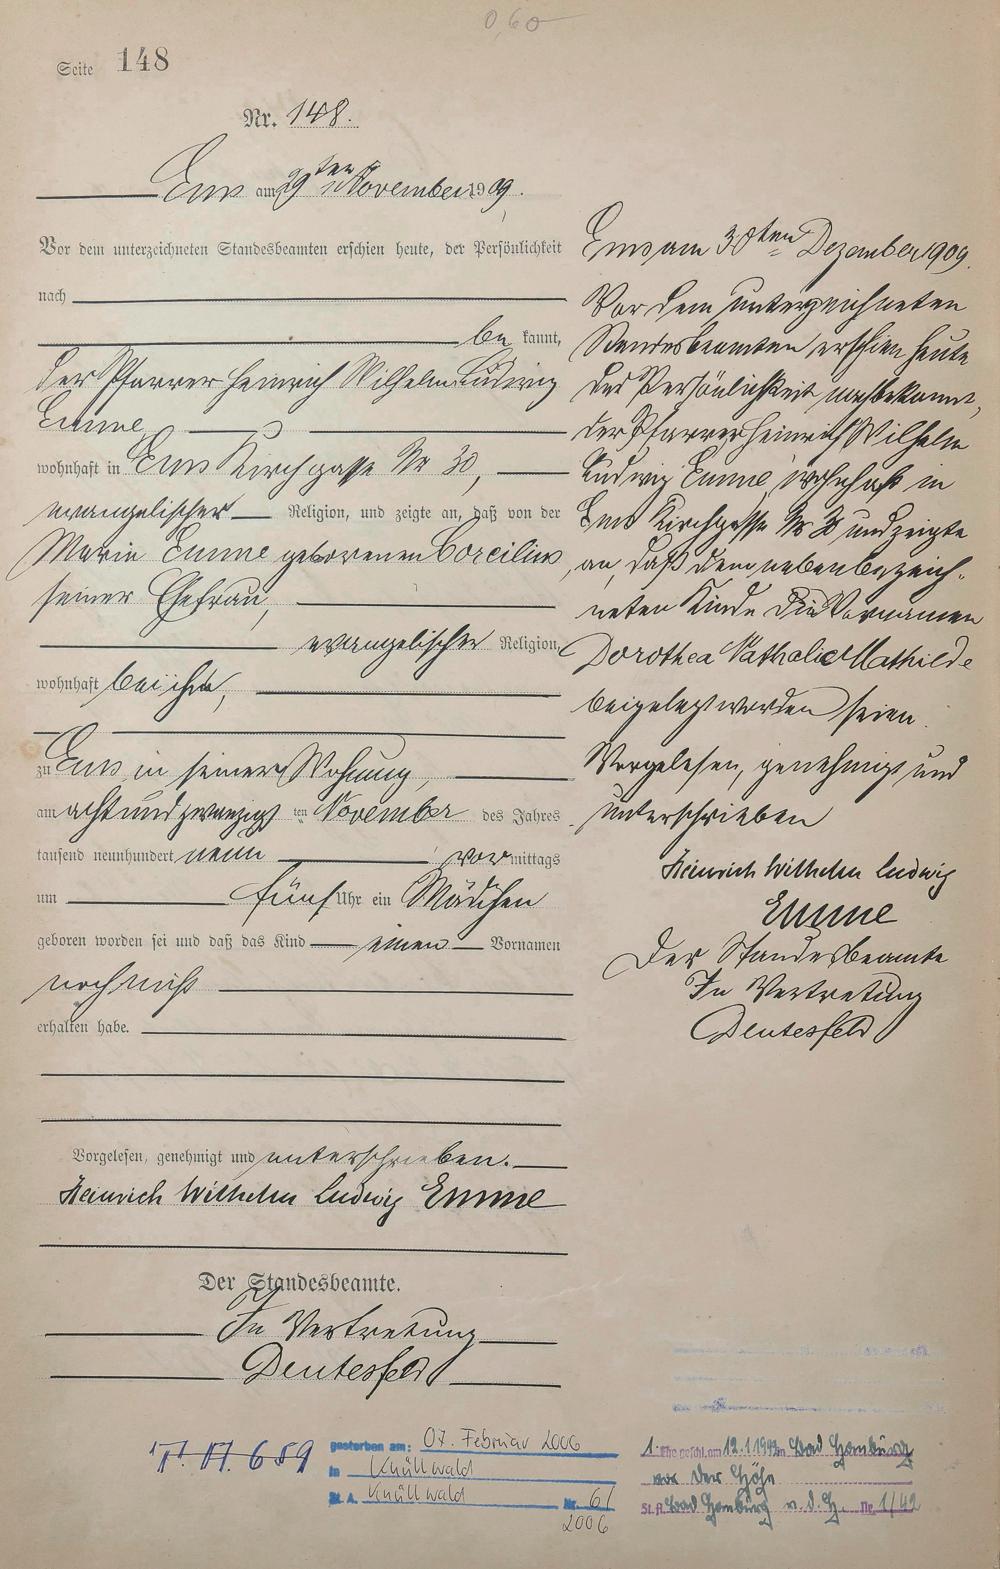 0,60
Seite 148
Nr. 148.
Ems am 29ten November 1909.
Vor dem unterzeichneten Standesbeamten erschien heute, der Persönlichkeit
nach
be kannt,
der Pfarrer Heinrich Wilhelm Ludwig
Emme,
wohnhaft in Ems Kirchgasse Nr 30,
evangelischer Religion, und zeigte an, daß von der
Maria Emme geborenen Corcilius,
seiner Ehefrau,
evangelischer Religion,
wohnhaft bei ihm,
zu Ems in seiner Wohnung,
am achtundzwanzigs ten November des Jahres
tausend neunhundert neun vor mittags
um fünf Uhr ein Mädchen
geboren worden sei und daß das Kind einen Vornamen
noch nicht
erhalten habe.
Vorgelesen, genehmigt und unterschrieben.
Heinrich Wilhelm Ludwig Emme
Der Standesbeamte.
In Vertretung
Deutesfeld
Ems am 30ten Dezember 1909.
Vor dem unterzeichneten
Standesbeamten erschien heute
der Persönlichkeit nach bekannt,
der Pfarrer Heinrich Wilhelm
Ludwig Emme, wohnhaft in
Ems Kirchgasse Nr 30 und zeigte
an, daß dem nebenbezeich-
neten Kinde die Vornamen
Dorothea Nathalie Mathilde
beigelegt worden seien.
Vorgelesen, genehmigt und
unterschrieben
Heinrich Wilhelm Ludwig
Emme
Der Standesbeamte
In Vertretung
Deutesfeld
689
gestorben am: 07. Februar 2006
in Knüllwald
St. A. Knüllwald Nr. 6/
2006
1. Ehe geschl. am 12.1.1942 in Bad Homburg
vor der Höhe
St. A. Bad Homburg v. d. H. Nr. 1/42